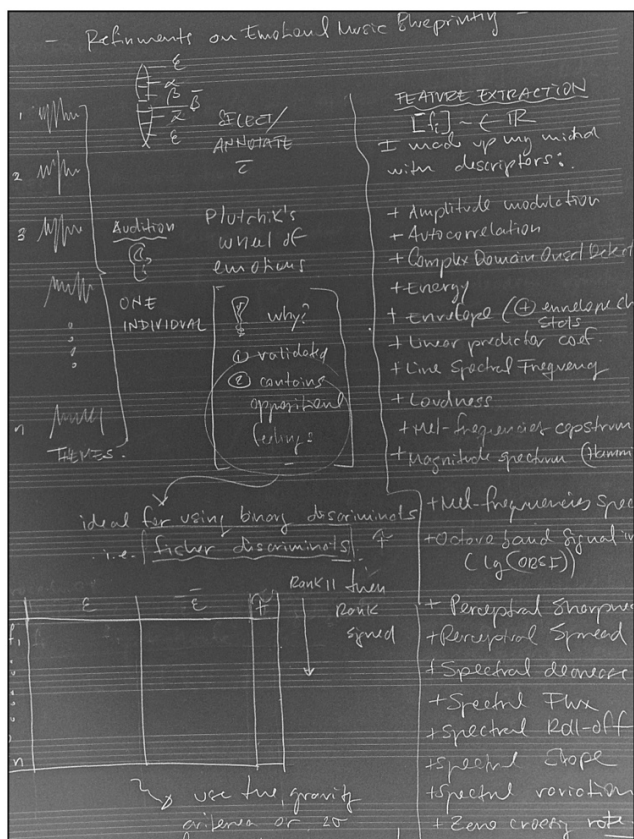 - Refinements on Emotional Music Blueprinting -
ε
α
β
β̄
ᾱ
ε̄
1
2
3
n
THEMES.
Audition
ONE
INDIVIDUAL
SELECT/
ANNOTATE
Plutchik's
wheel of
emotions
why?
① validated
② contains
oppositional
feelings
ideal for using binary discriminats
i.e. ficher discriminats
ε ε̄
f1
n
Rank || then
Rank
signed
use the gravity
criterea or 2σ
FEATURE EXTRACTION
[fi] ~ ∈ ℝ
I made up my mind
with descriptors:
+ Amplitude modulation
+ Autocorrelation
+ Complex Domain Onset Detect
+ Energy
+ Envelope (⊕ envelope sh
stats
+ Linear predictor coef.
+ Line Spectral Frequency
+ Loudness
+ Mel-frequencies cepstrum
+ Magnitude spectrum (Hammi
+ Mel-frequencies spec
+ Octave band signal in
(lg(OBSI))
+ Perceptral Sharpnes
+ Perceptral Spread
+ Spectral decrease
+ Spectral Flux
+ Spectral Roll-off
+ Spectral Slope
+ Spectral variation
+ Zero crossing rate